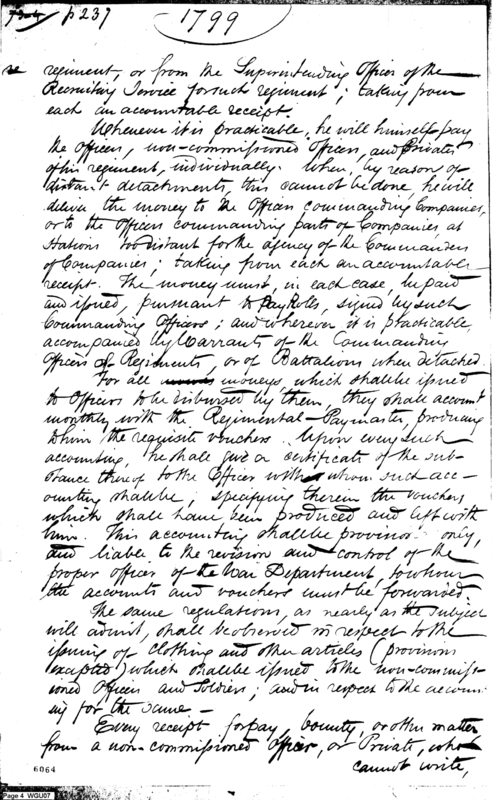 p 237
1799
re regiment, or from the Superintending Officer of the
Recruiting Service for such regiment; taking from
each an accountable receipt.
Whenever it is practicable, he will himself pay
the officers, non-commissioned officers, and Privates
of his regiment, individually. When, by reason of
distant detachments, this cannot be done, he will
deliver the money to the Officers commanding Companies,
or to the Officers commanding parts of Companies, at
Stations too distant for the agency of the Commanders
of Companies; taking from each an accountable
receipt. The money must, in each case, be paid
and issued, pursuant to Payrolls, signed by such
Commanding Officers; and wherever it is practicable,
accompanied by Warrants of the Commanding
Officers of Regiments, or of Battalions when detached.
For all moneys, which shall be issued
to Officers to be disbursed by them, they shall account
monthly with the Regimental-Paymaster, producing
to him the requisite vouchers. Upon every such
accounting, he shall give a certificate of the sub-
stance thereof to the Officer with whom such acc-
ounting shall be; specifying therein the vouchers
which shall have been produced and left with
him. This accounting shall be provisional only,
and liable to the revision and control of the
proper officer of the War Department, to whom
the accounts and vouchers must be forwarded.
The same regulations, as nearly as the subject
will admit, shall be observed in respect to the
issuing of clothing and other articles (provisions
excepted) which shall be issued to the non-commiss-
ioned Officers and Soldiers; and in respect to the account-
ing for the same —
Every receipt for pay, bounty, or other matter
from a non-commissioned officer, or Private, who
cannot write,
6064
Page 4 WGU07